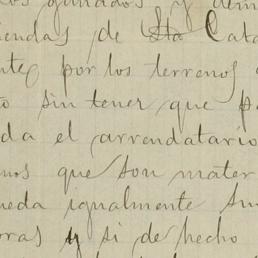 los ganados y dem
iendas de Sta Cata
nte por los terrenos
o sin tener que p
da el arrendatario
nos que son mater
ueda igualmente su
oras y si de hecho